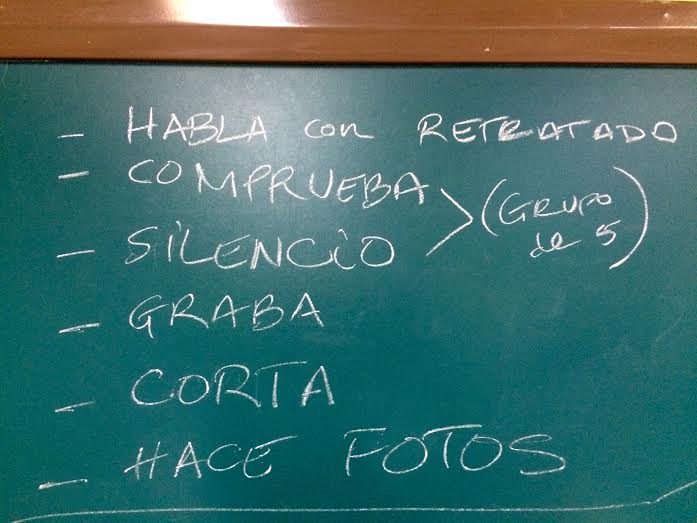 - HABLA con RETRATADO
- COMPRUEBA
- SILENCIO
(GRUPO
de 5)
- GRABA
- CORTA
- HACE FOTOS